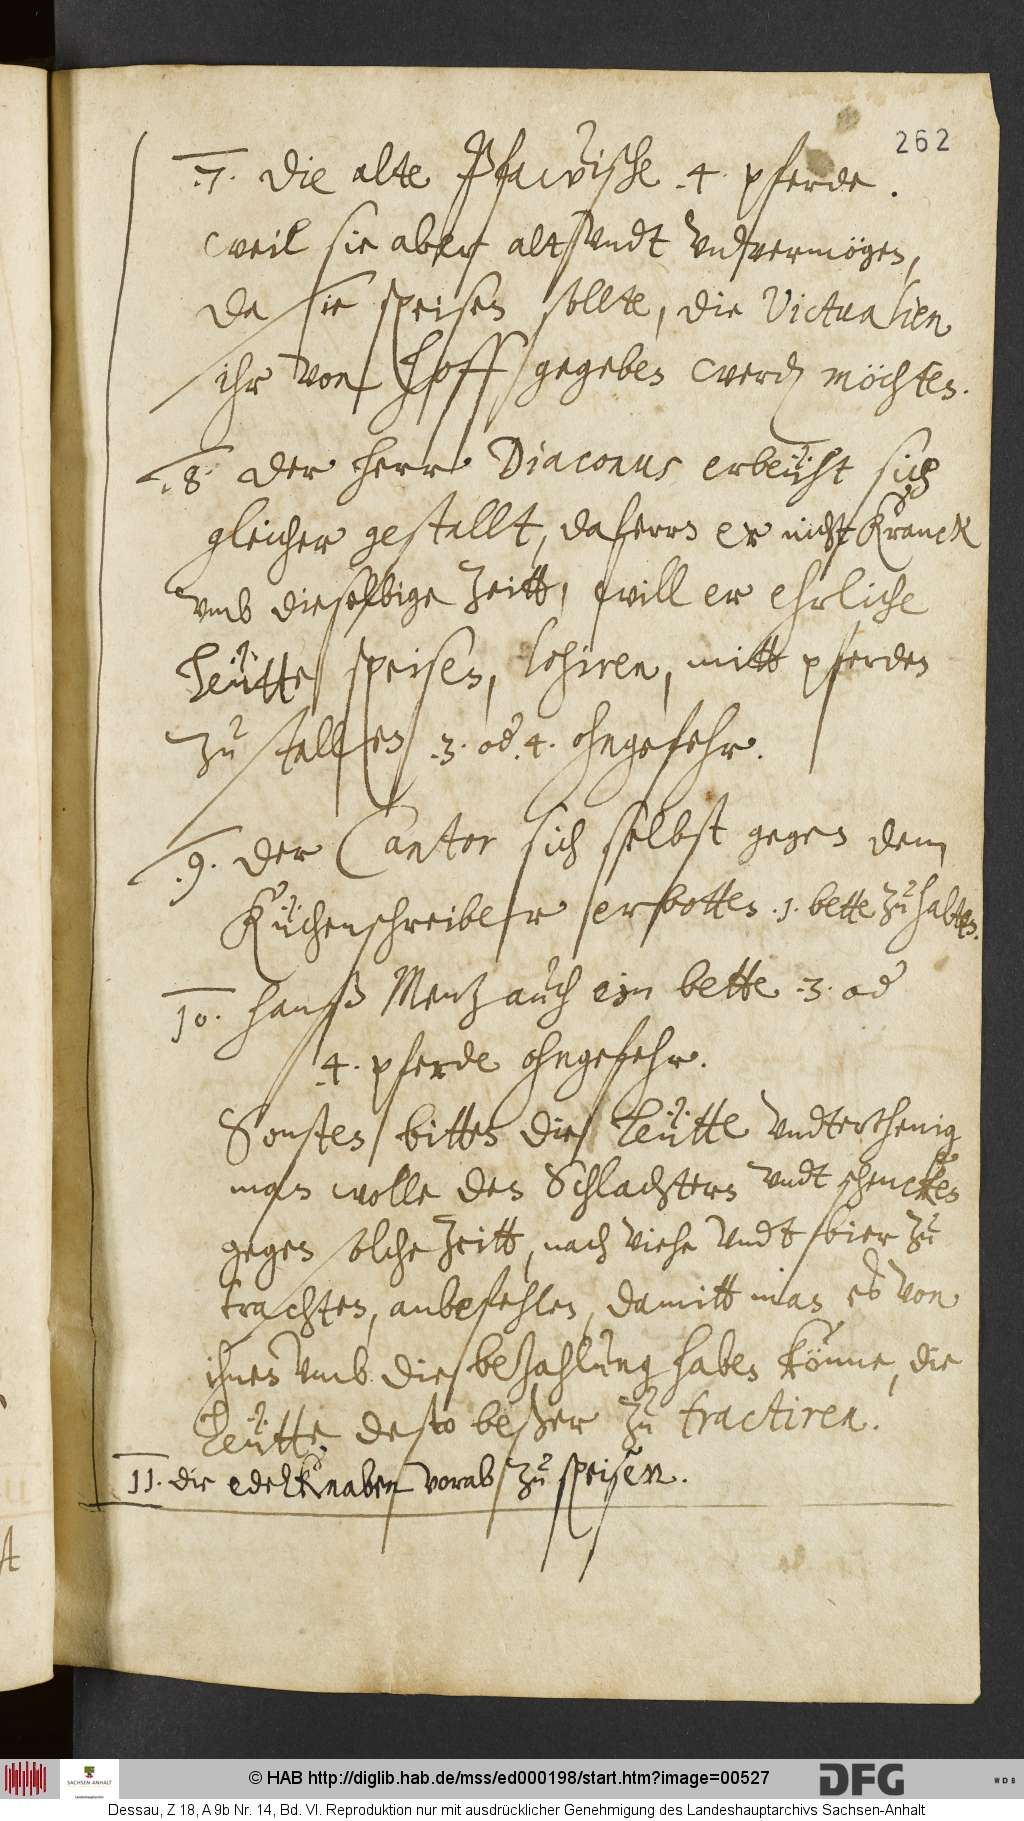 262
7. die alte Pfawische 4. pferde.
weil sie aber alt Vndt Vnvermögen,
da sie speisen sollte, die Victualien
ihr von Hoff gegeben werden möchten.
8. der herr Diaconus erbeüht sich
gleicher gestallt, daferrn er nicht kranck
vmb dieselbige Zeitt, will er ehrliche
Leütte speisen, lohiren, mitt pferden
zu stallen 3. od 4. ohngefehr.
9. der Cantor sich selbst gegen dem
Küchenschreiber erbotten .1. bette zu halten.
10. Hanß Mentz auch ein bette 3. od
4. pferde ohngefehr.
Sonsten bitten die Leütte Vndterthenig
man wolle den Schlachtern Vndt schencken
gegen solche Zeitt, nach Viehe Vndt bier zu
trachten, anbefehlen, damitt man es von
ihnen Vmb die bezahlung haben könne, die
Leütte desto beßer zu tractiren.
11. die edelknaben vorab zu speisen.
© HAB http://diglib.hab.de/mss/ed000198/start.htm?image=00527
SACHSEN-ANHALT
DFG
WDB
Dessau, Z 18, A 9b Nr. 14, Bd. VI. Reproduktion nur mit ausdrücklicher Genehmigung des Landeshauptarchivs Sachsen-Anhalt